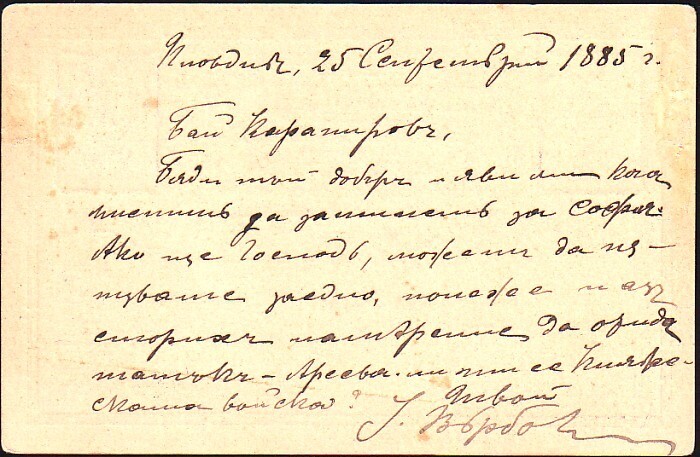 Пловдивъ, 25 Септемврий 1885 г.
Бай Карапировъ,
Бѫди тъй добъръ и яви ми кога
мислишъ да заминешъ за София.
Ако ще Господь, можеми да пѫ-
туваме заедно, понеже и азъ
сторихъ намѣрение да отида
татъкъ – Аресва ли ти се Княже-
ската войска?
Твой
Върбо